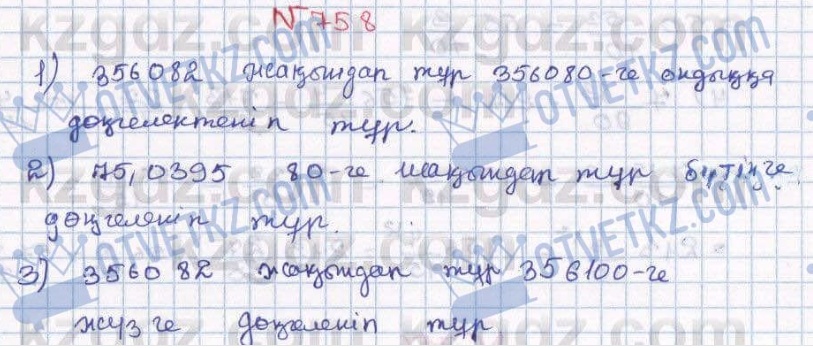 №758
1) 356082 жақындап тұр 356080-ге ондыққа
дөңгелектеніп тұр.
2) 75,0395 80-ге жақындап тұр бүтінге
дөңгеленіп тұр.
3) 356082 жақындап тұр 356100-ге
жүзге дөңгеленіп тұр